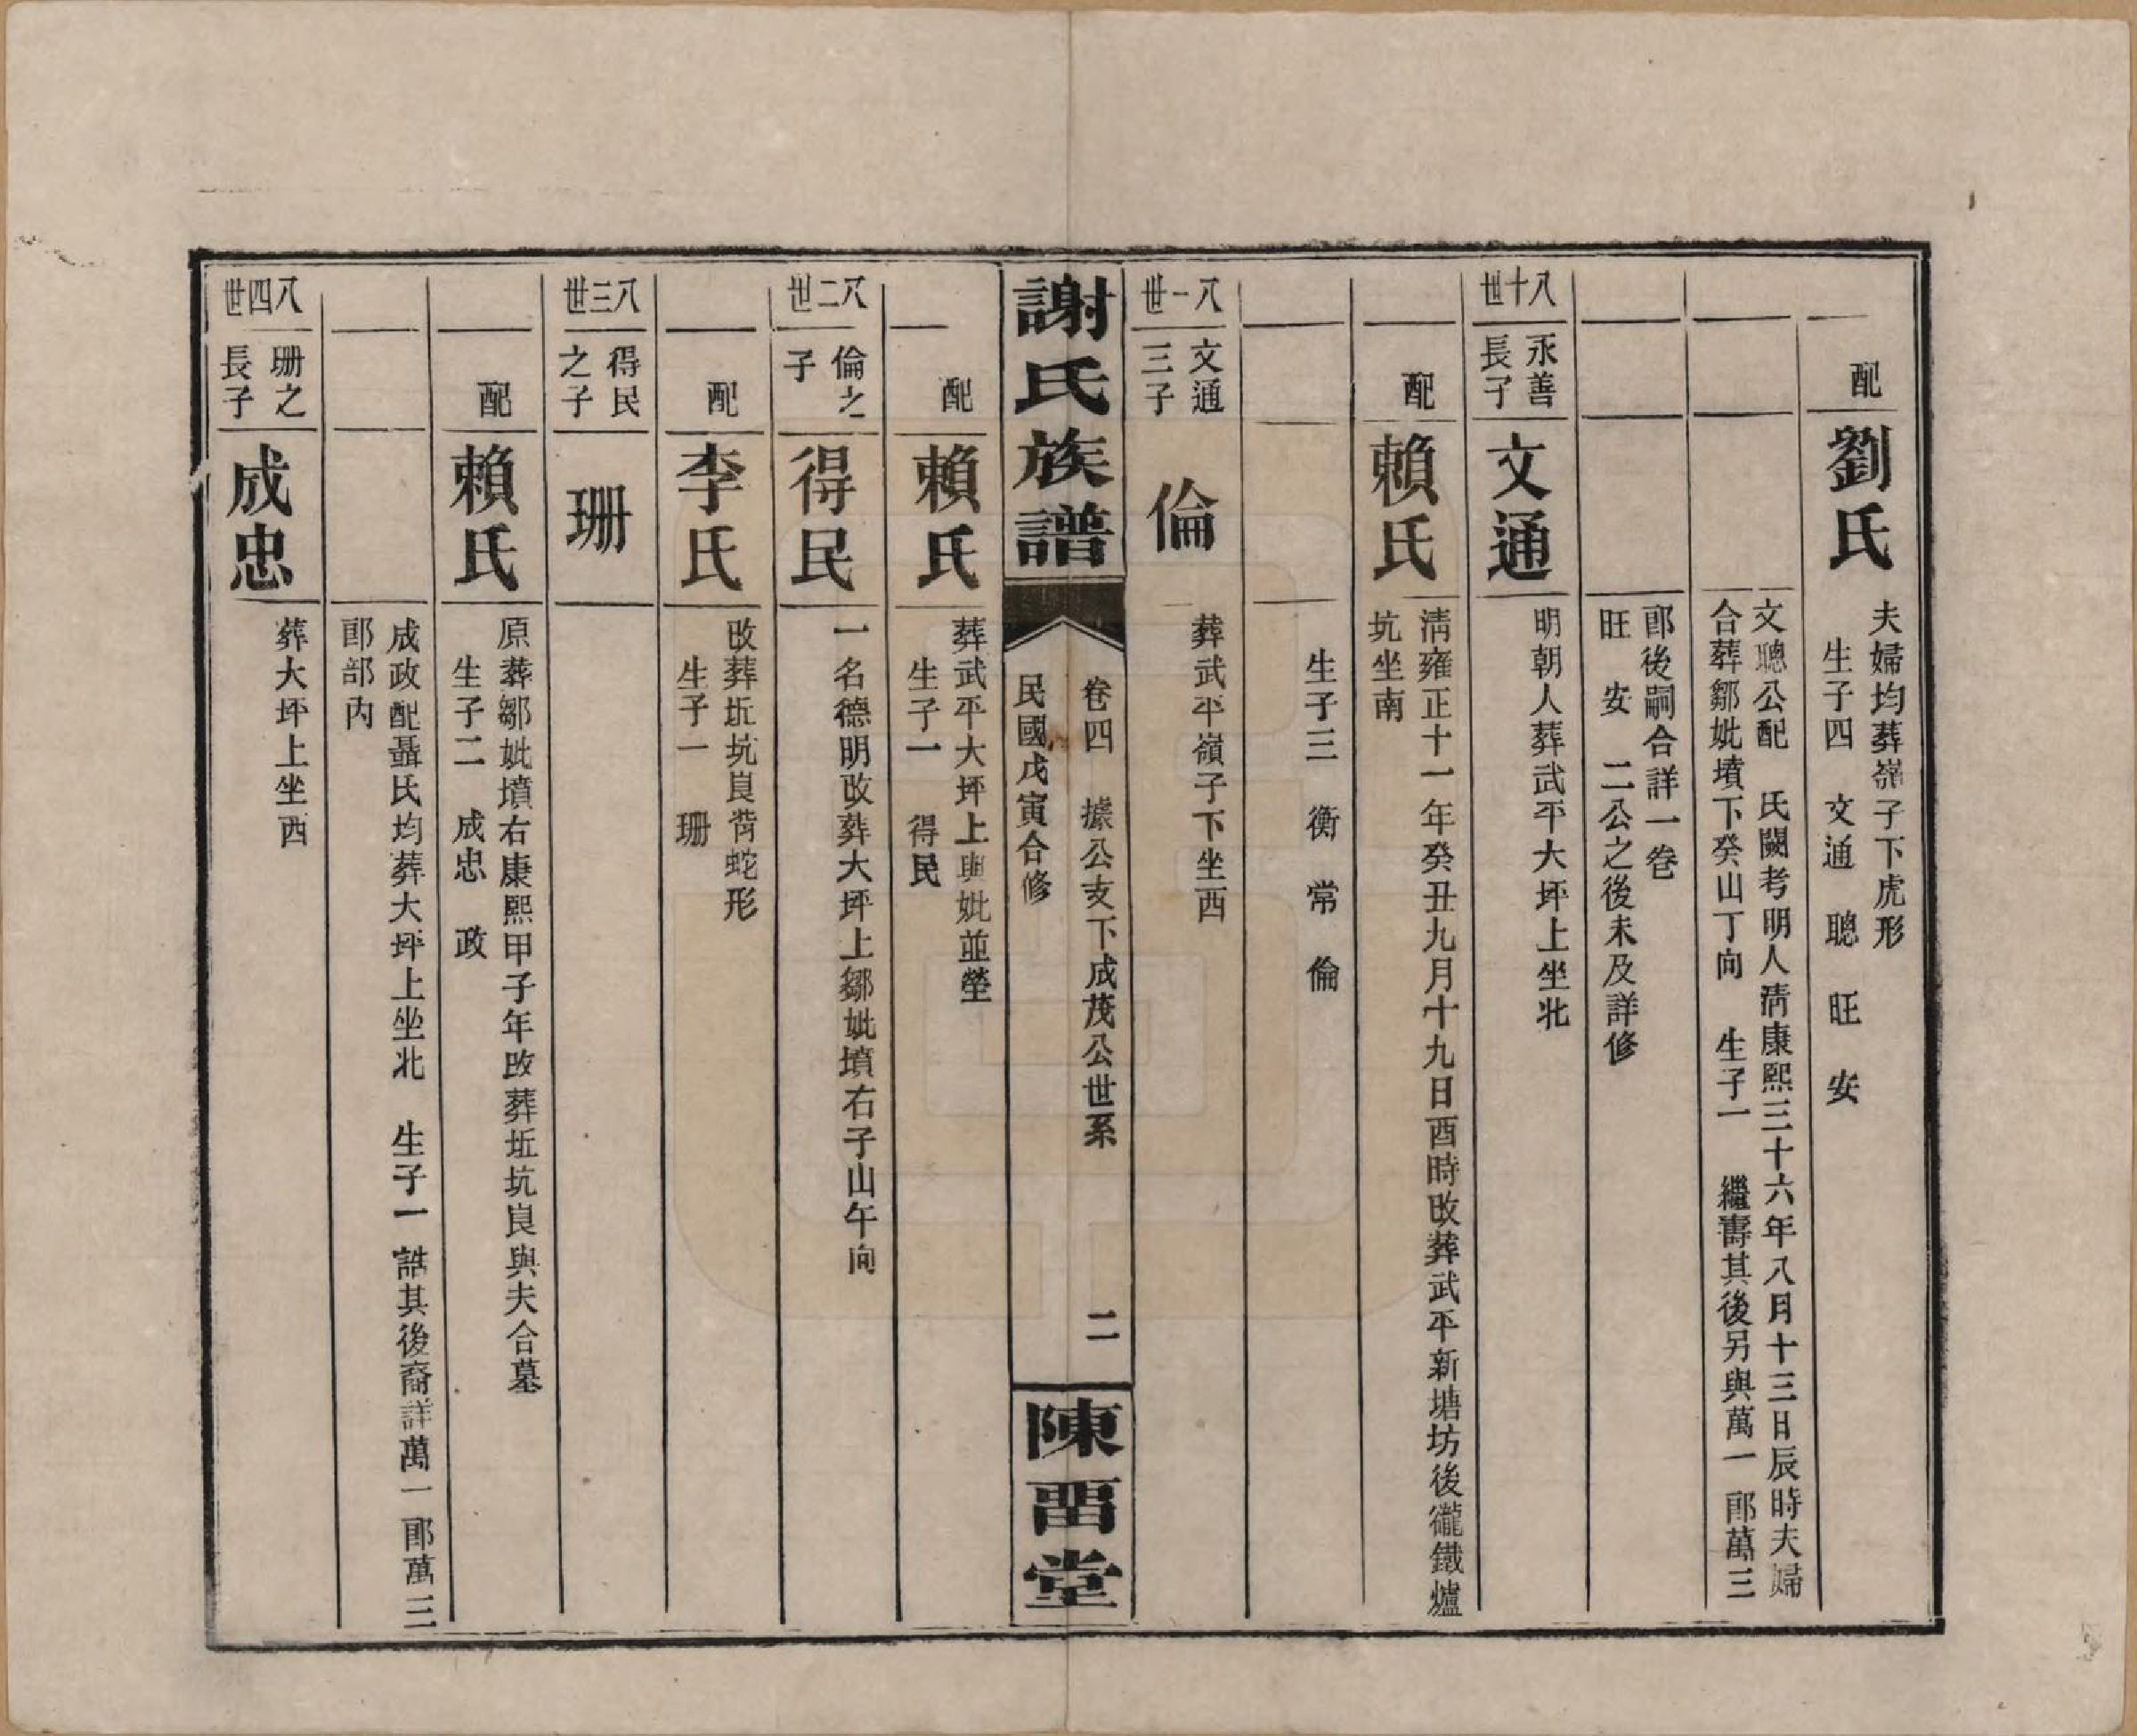 配
劉氏
夫婦均葬嶺子下虎形
生子四　文通　聰　旺　安
文聰公配　氏闕考明人清康熙三十六年八月十三日辰時夫婦
合葬鄒妣墳下癸山丁向　生子一　繼壽其後另與萬一郎萬三
郎後嗣合詳一卷
旺　安　二公之後未及詳修
八十世
永善
長子
文通
明朝人葬武平大坪上坐北
配
賴氏
清雍正十一年癸丑九月十九日酉時改葬武平新塘坊後鐵爐
坑坐南
生子三　衡　常　倫
八一世
文通
三子
倫
葬武平嶺子下坐西
謝氏族譜
卷四　據公支下成茂公世系　二
民國戊寅合修
陳畱堂
配
賴氏
葬武平大坪上與妣並塋
生子一　得民
八二世
倫之
子
得民
一名德明改葬大坪上鄒妣墳右子山午向
配
李氏
改葬坵坑崀背蛇形
生子一　珊
八三世
得民
之子
珊
配
賴氏
原葬鄒妣墳右康熙甲子年改葬坵坑崀與夫合墓
生子二　成忠　政
成政配聶氏均葬大坪上坐北　生子一　誥其後裔詳萬一郎萬三
郎部內
八四世
珊之
長子
成忠
葬大坪上坐西